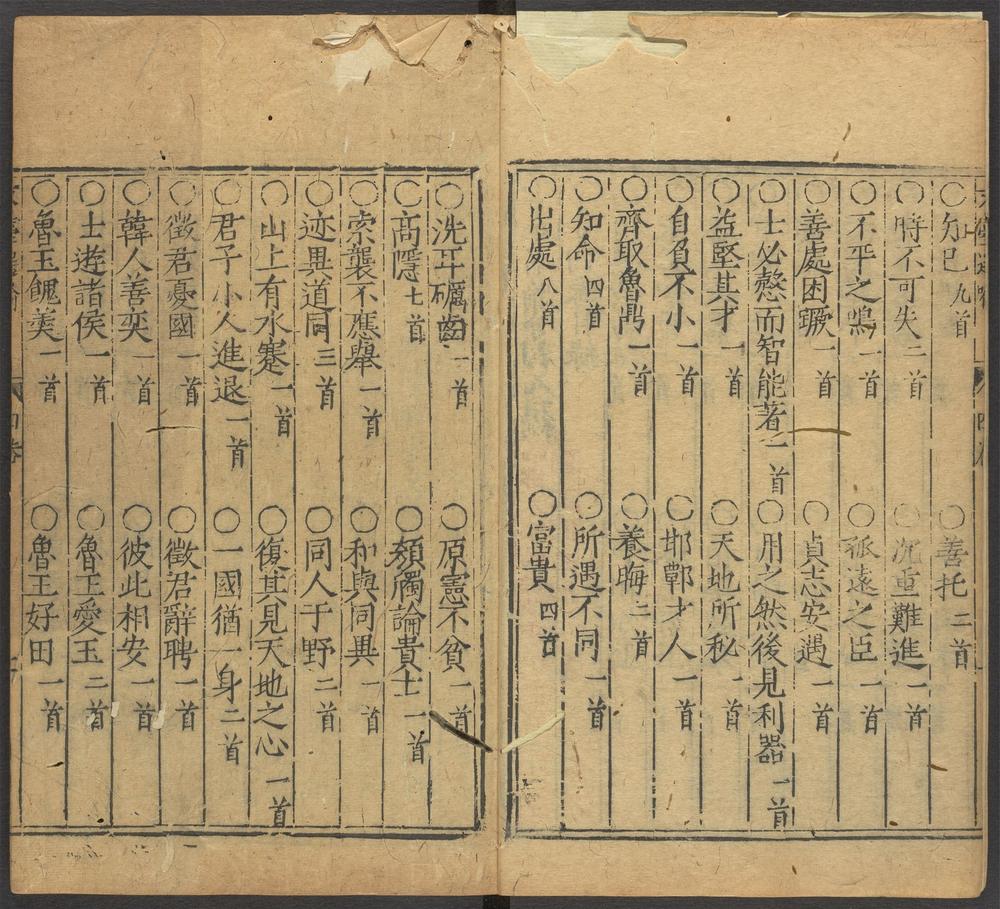 ○知已九首 ○善托二首
○時不可失二首 ○沉重難進一首
○不平之鳴一首 ○孤遠之臣一首
○善處困蹶一首 ○貞志安遇一首
○士必愨而智能著一首 ○用之然後見利器一首
○益堅其才一首 ○天地所秘一首
○自負不小一首 ○邯鄲才人一首
○齊取魯鼎一首 ○養晦二首
○知命四首 ○所遇不同一首
○出處八首 ○富貴四首
○洗耳礪齒一首 ○原憲不貧一首
○高隱七首 ○顏斶論貴士一首
○索襲不應舉一首 ○和與同異一首
○迹異道同三首 ○同人于野二首
○山上有水蹇一首 ○復其見天地之心一首
○君子小人進退一首 ○一國猶一身二首
○徵君憂國一首 ○徵君辭聘一首
○韓人善奕一首 ○彼此相安一首
○士遊諸侯一首 ○魯王愛玉二首
○魯王餽羮一首 ○魯王好田一首
四卷